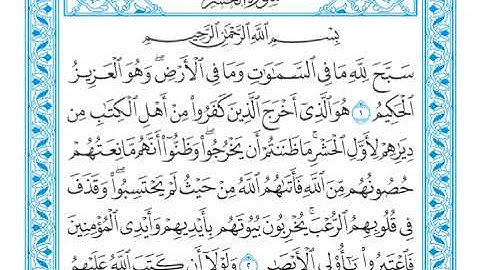 سورة الحشر
بِسْمِ اللَّهِ الرَّحْمَٰنِ الرَّحِيمِ
سَبَّحَ لِلَّهِ مَا فِي السَّمَاوَاتِ وَمَا فِي الْأَرْضِ ۖ وَهُوَ الْعَزِيزُ
الْحَكِيمُ ١ هُوَ الَّذِي أَخْرَجَ الَّذِينَ كَفَرُوا مِنْ أَهْلِ الْكِتَابِ مِن
دِيَارِهِمْ لِأَوَّلِ الْحَشْرِ ۚ مَا ظَنَنتُمْ أَن يَخْرُجُوا ۖ وَظَنُّوا أَنَّهُم مَّانِعَتُهُمْ
حُصُونُهُم مِّنَ اللَّهِ فَأَتَاهُمُ اللَّهُ مِنْ حَيْثُ لَمْ يَحْتَسِبُوا ۖ وَقَذَفَ
فِي قُلُوبِهِمُ الرُّعْبَ ۚ يُخْرِبُونَ بُيُوتَهُم بِأَيْدِيهِمْ وَأَيْدِي الْمُؤْمِنِينَ
فَاعْتَبِرُوا يَا أُولِي الْأَبْصَارِ ٢ وَلَوْلَا أَن كَتَبَ اللَّهُ عَلَيْهِمُ